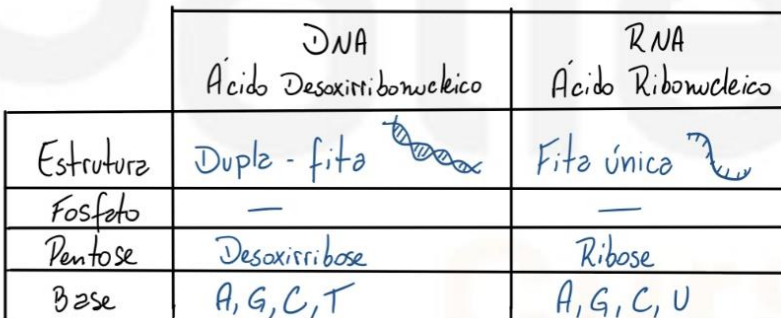 DNA RNA
Ácido Desoxirribonucleico Ácido Ribonucleico
Estrutura Dupla - fita Fita única
Fosfato — —
Pentose Desoxirribose Ribose
Base A, G, C, T A, G, C, U